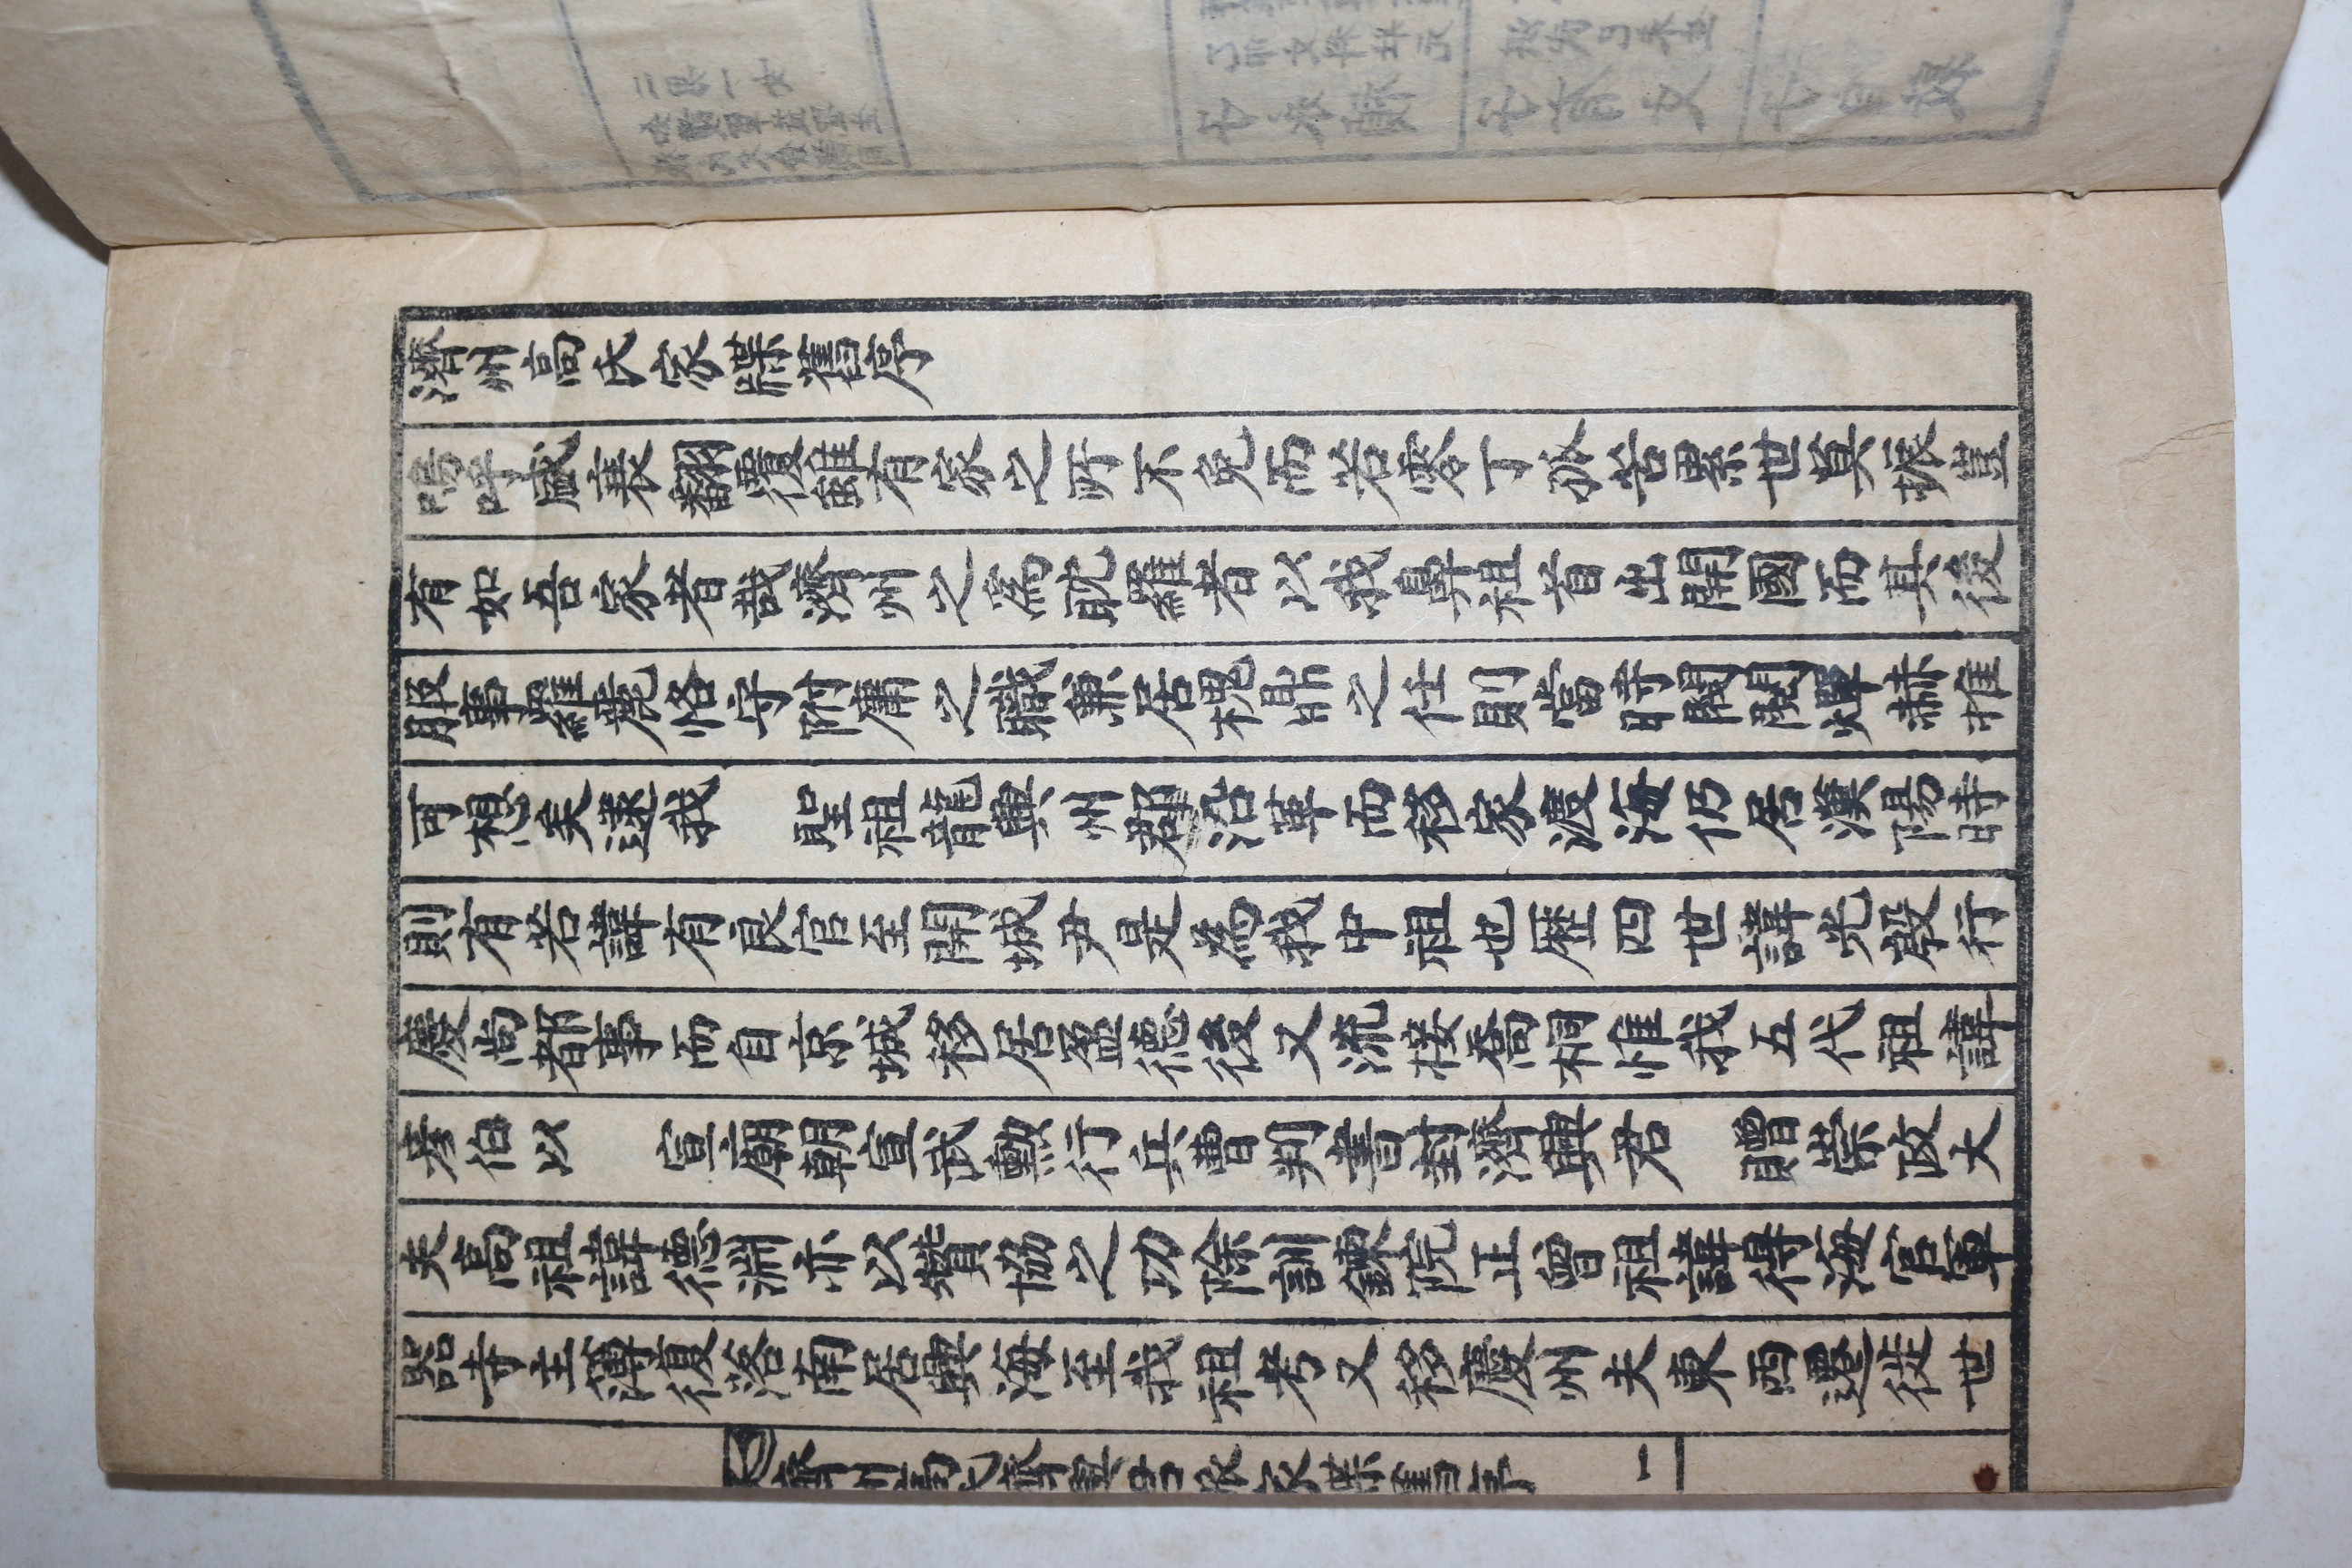 濟州高氏家牒舊序
嗚呼盛衰飜覆雖有家之所不免而若零丁孤苦累世莫振豈
有如吾家者哉濟州之爲耽羅者以我鼻祖首出開國而其後
服事羅麗恪守附庸之職兼居槐鼎之仕則當時閥閱燀赫推
可想矣逮我 聖祖龍興州郡沿革而移家渡海仍居漢陽時
則有若諱有良官至開城尹是爲我中祖也歷四世諱光殷行
慶尙都事而自京城移居盈德後又流接喬桐惟我五代祖諱
孝伯以 宣廟朝宣武勳行兵曹判書封濟興君 贈崇政大
夫高祖諱德淵亦以贊協之功除訓鍊院正曾祖諱得海官軍
器寺主溥復落南居興海至我祖考又移慶州夫東西遷徙世
濟州高氏濟興君派家牒舊序 一